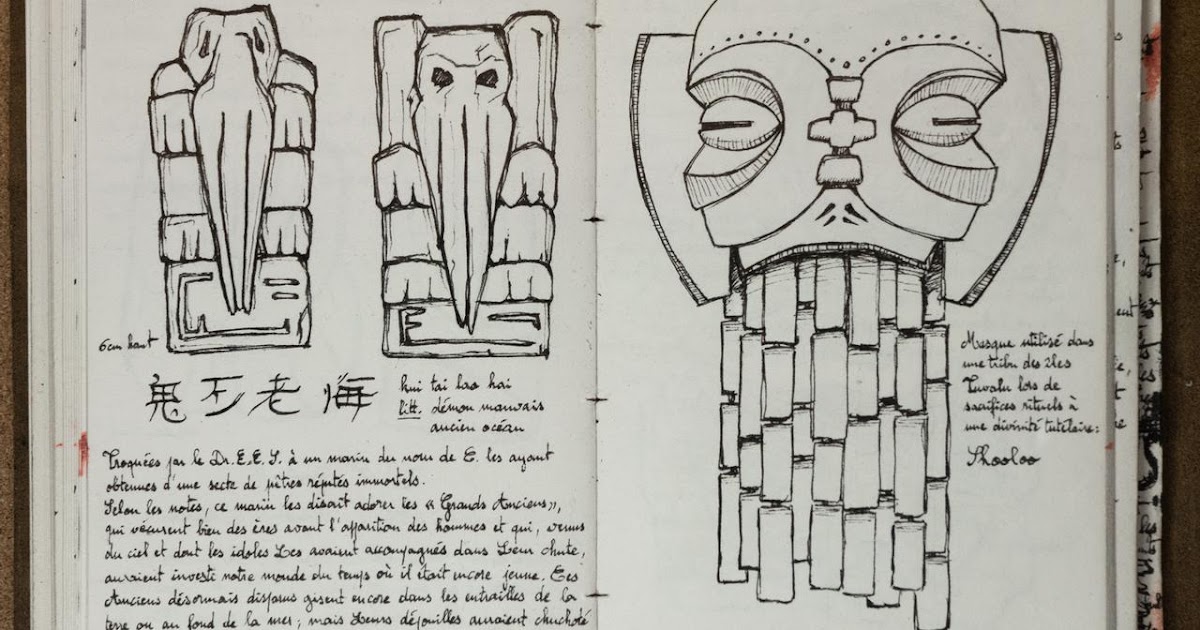 6cm haut
鬼歹老海
hui tai lao hai
litt. démon mauvais
ancien océan
Troquées par le Dr. E.E.S. à un marin du nom de E. les ayant
obtenues d'une secte de pêtres réputés immortels.
Selon les notes, ce marin les disait adorer les « Grands Anciens »,
qui vécurent bien des ères avant l'apparition des hommes et qui, venus
du ciel et dont les idoles Les avaient accompagnés dans Leur chute,
auraient investi notre monde du temps où il était encore jeune. Ces
Anciens désormais disparus gisent encore dans les entrailles de la
terre ou au fond de la mer ; mais Leurs dépouilles auraient chuchoté
Masque utilisé dans
une tribu des îles
Tuvalu lors de
sacrifices rituels à
une divinité tutélaire :
Shooloo